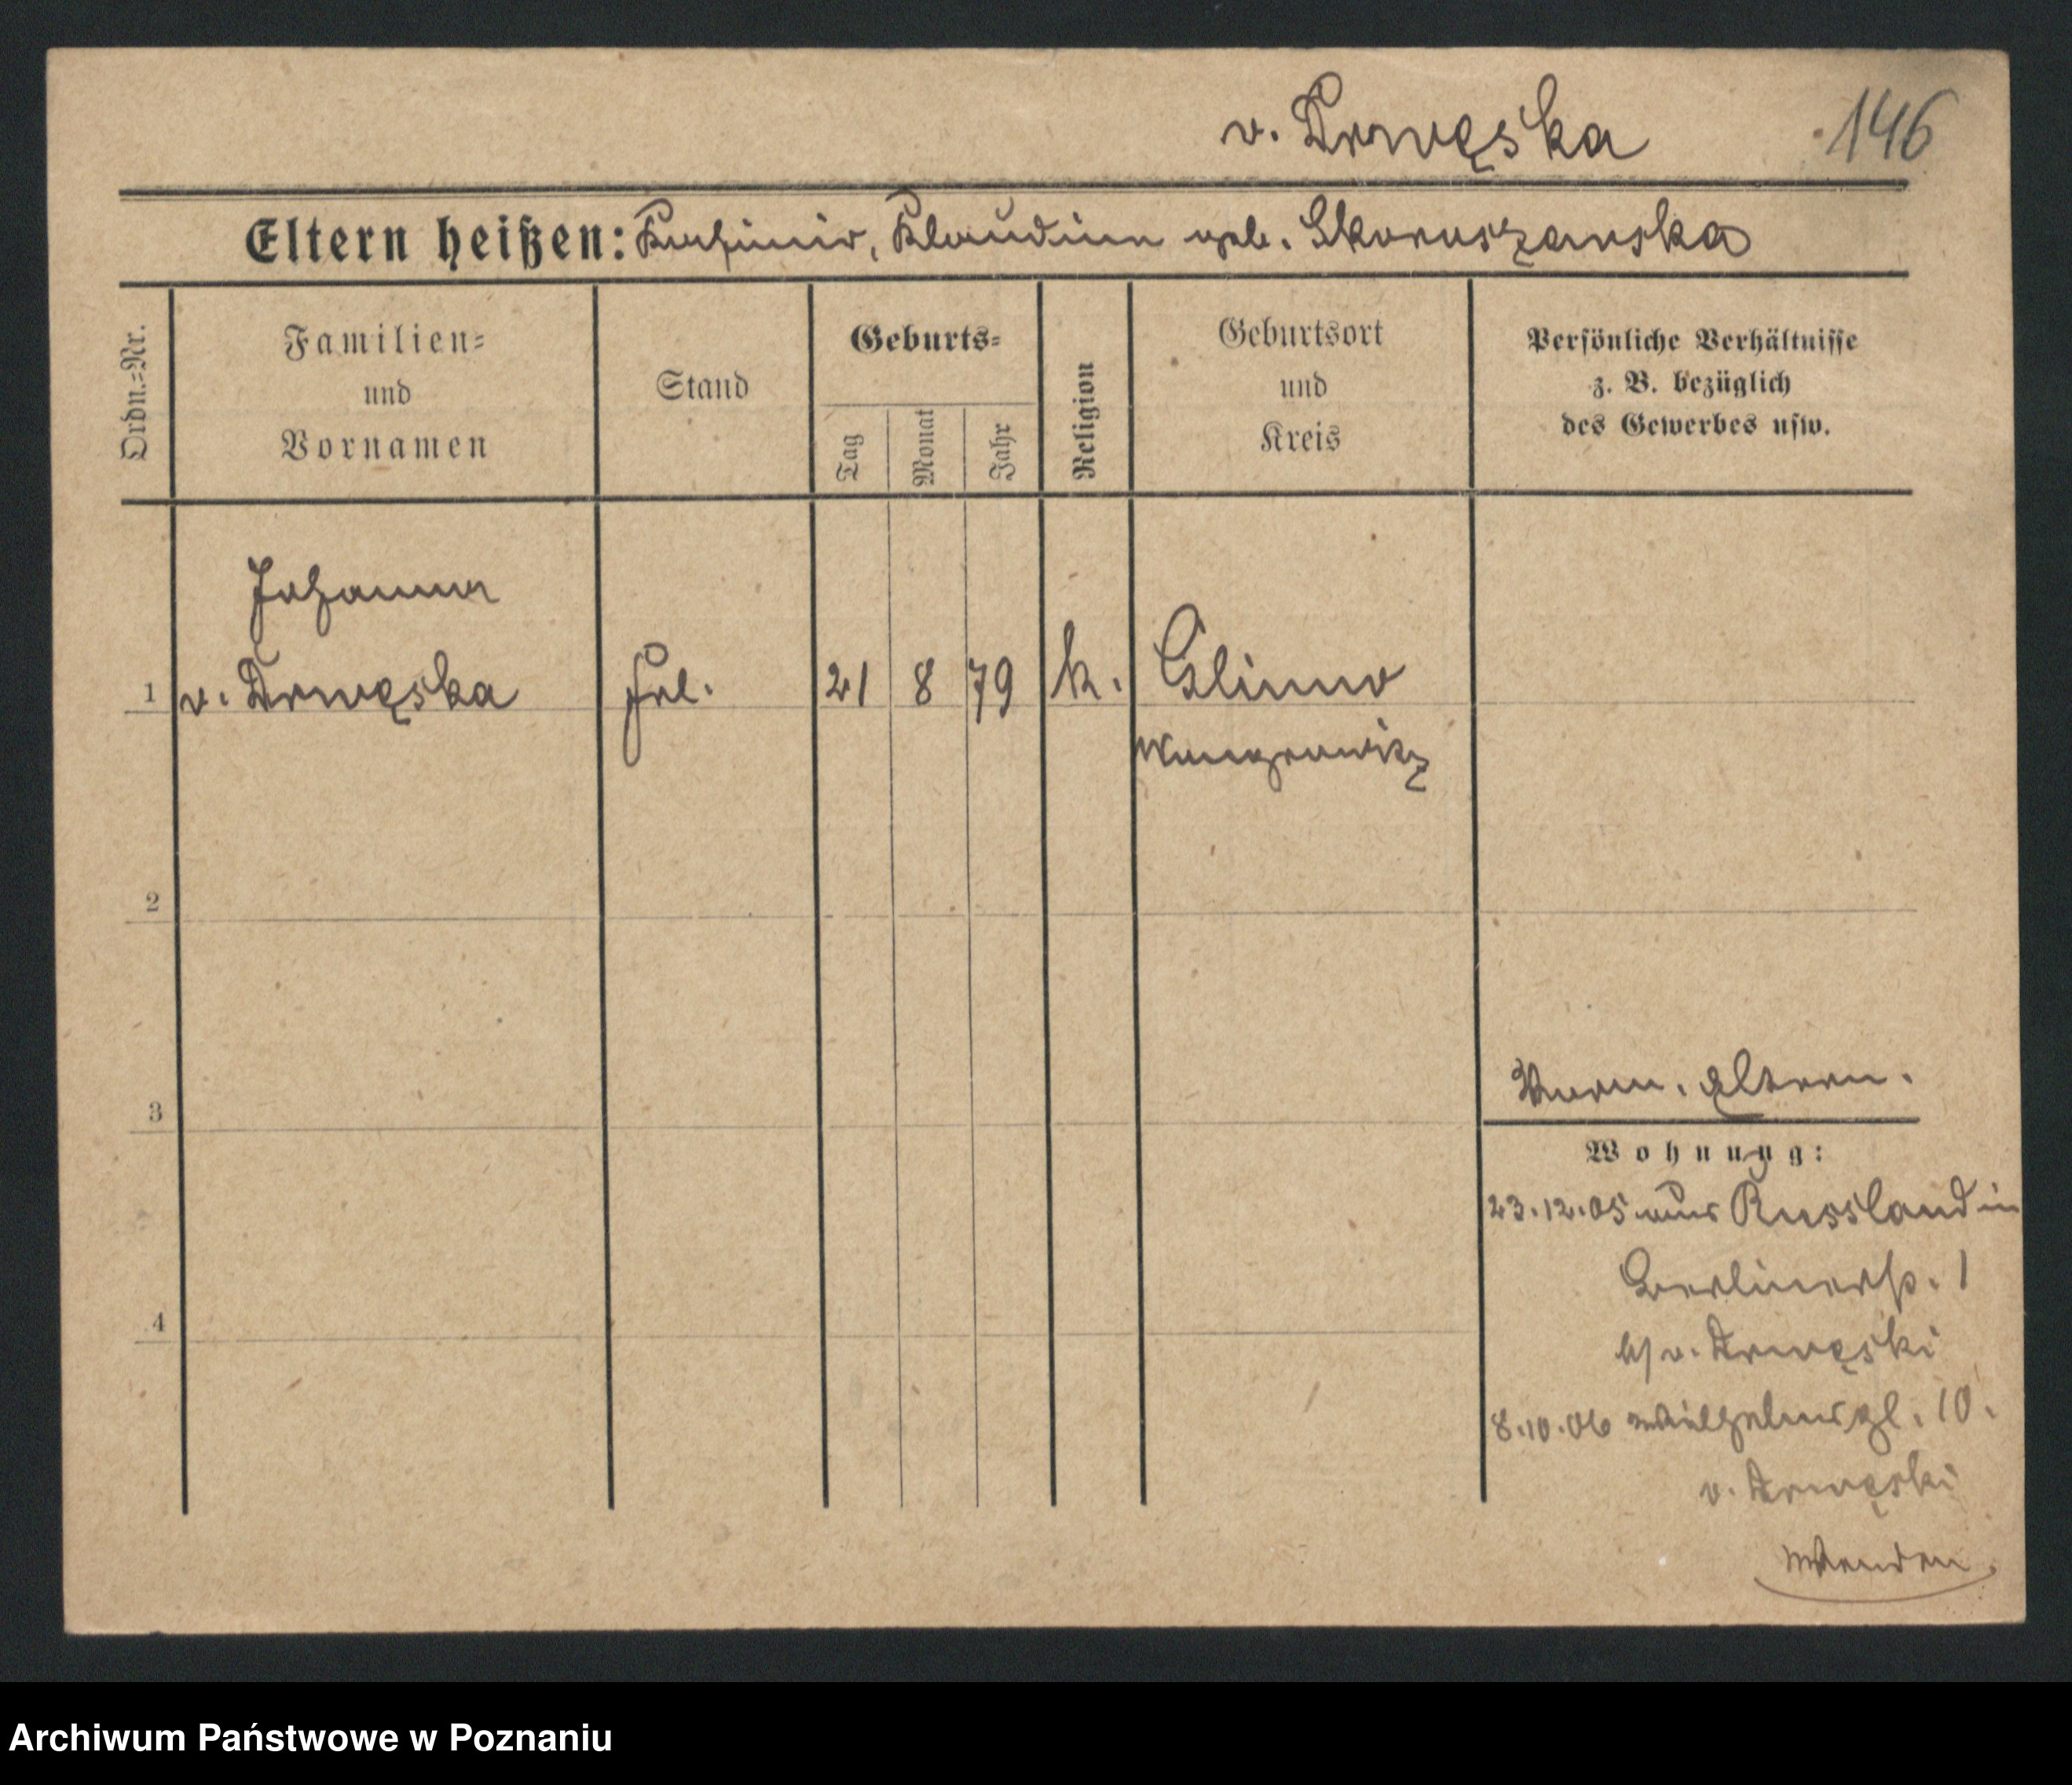 v. Drwęska
146
Eltern heißen: Kasimir, Klaudina geb. Skoruszanska
Ordn.=Nr.
Familien=
und
Vornamen
Stand
Geburts=
Tag
Monat
Jahr
Religion
Geburtsort
und
Kreis
Persönliche Verhältnisse
z. B. bezüglich
des Gewerbes usw.
Johanna
1 v. Drwęska frl. 21 8 79 k. Glinno
Wongrowitz
2
3
Verm. Eltern.
Wohnung:
23.12.05 aus Russland in
Berlinerstr. 1
b/ v. Drwęski
4
8.10.06 Wilhelmspl. 10.
v. Drwęski
Wenden
Archiwum Państwowe w Poznaniu